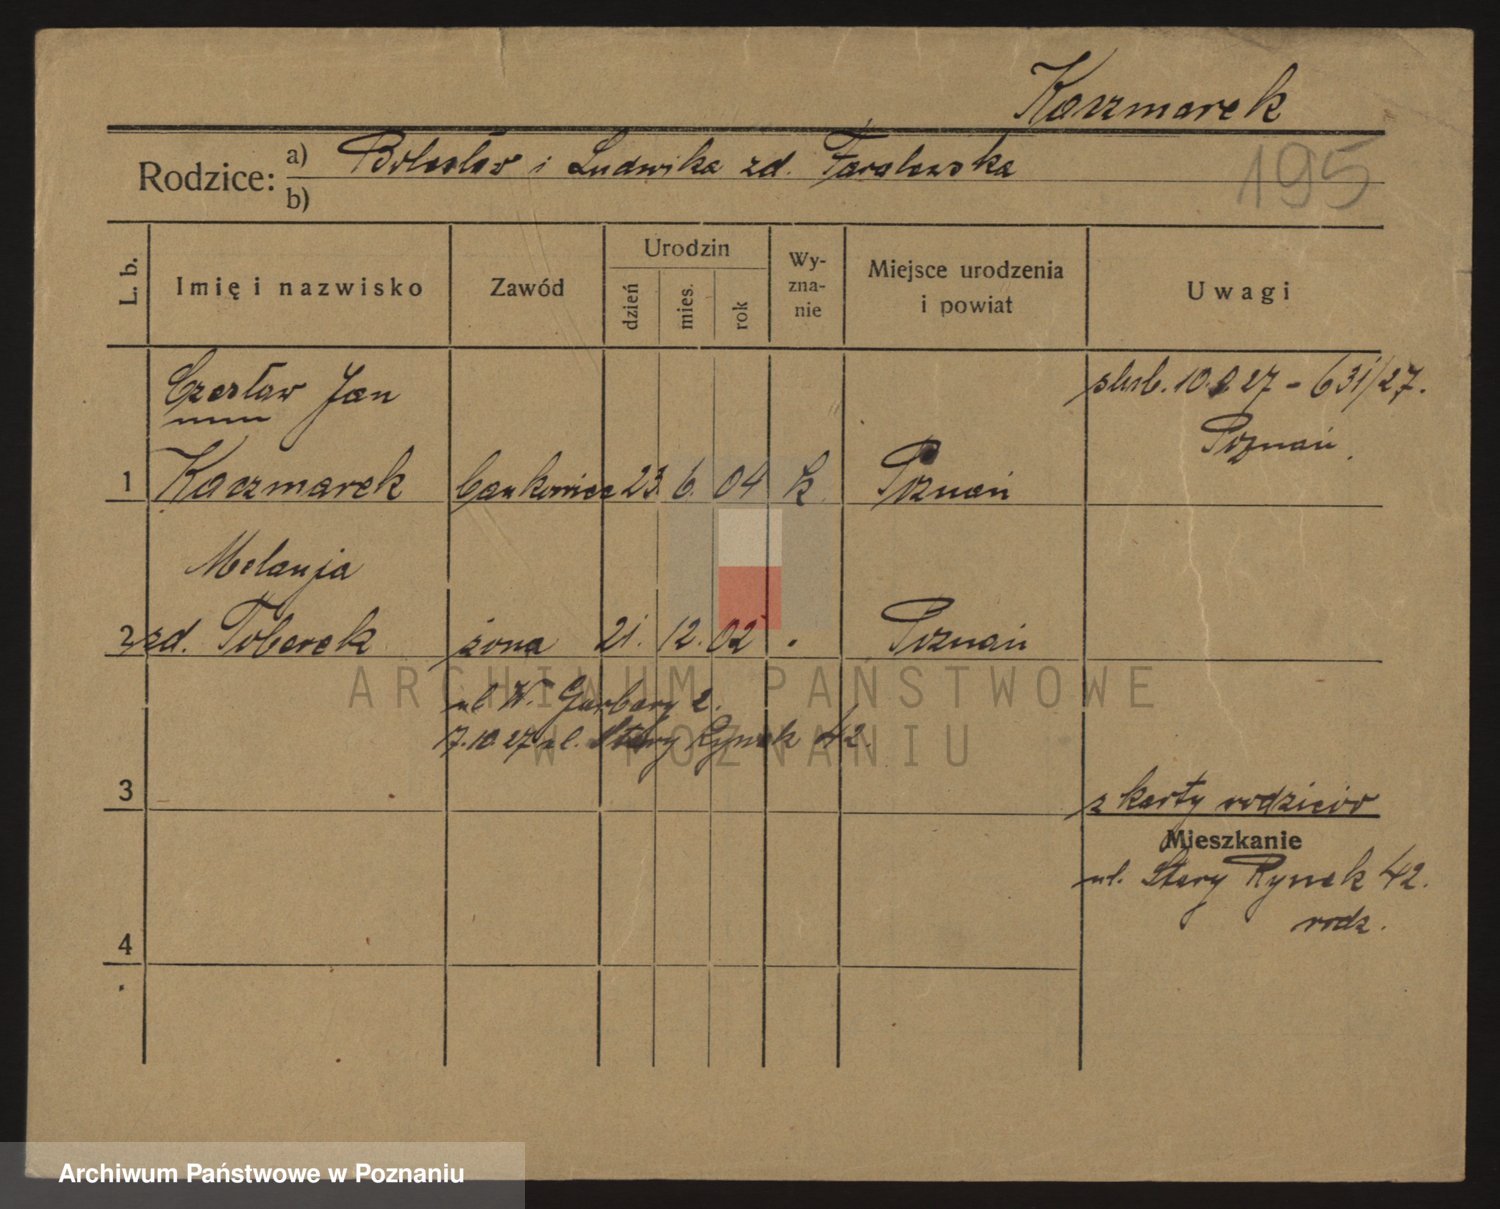 Kaczmarek
Rodzice: a) Bolesław i Ludwika zd. 
b)
195
L. b.
Imię i nazwisko
Zawód
Urodzin
dzień
mies.
rok
Wy-
zna-
nie
Miejsce urodzenia
i powiat
Uwagi
Czesław Jan
ślub. 10.9.27 - 631/27.
Poznań.
1 Kaczmarek bankowiec 23. 6. 04 k Poznań
Melanja
2 zd. Toberek żona 21. 12. 02 . Poznań
ul. W. Garbary 2.
7.10.27 ul. Stary Rynek 42.
3
z karty rodziców
Mieszkanie
ul. Stary Rynek 42.
rodz.
4
ARCHIWUM PAŃSTWOWE
W POZNANIU
Archiwum Państwowe w Poznaniu